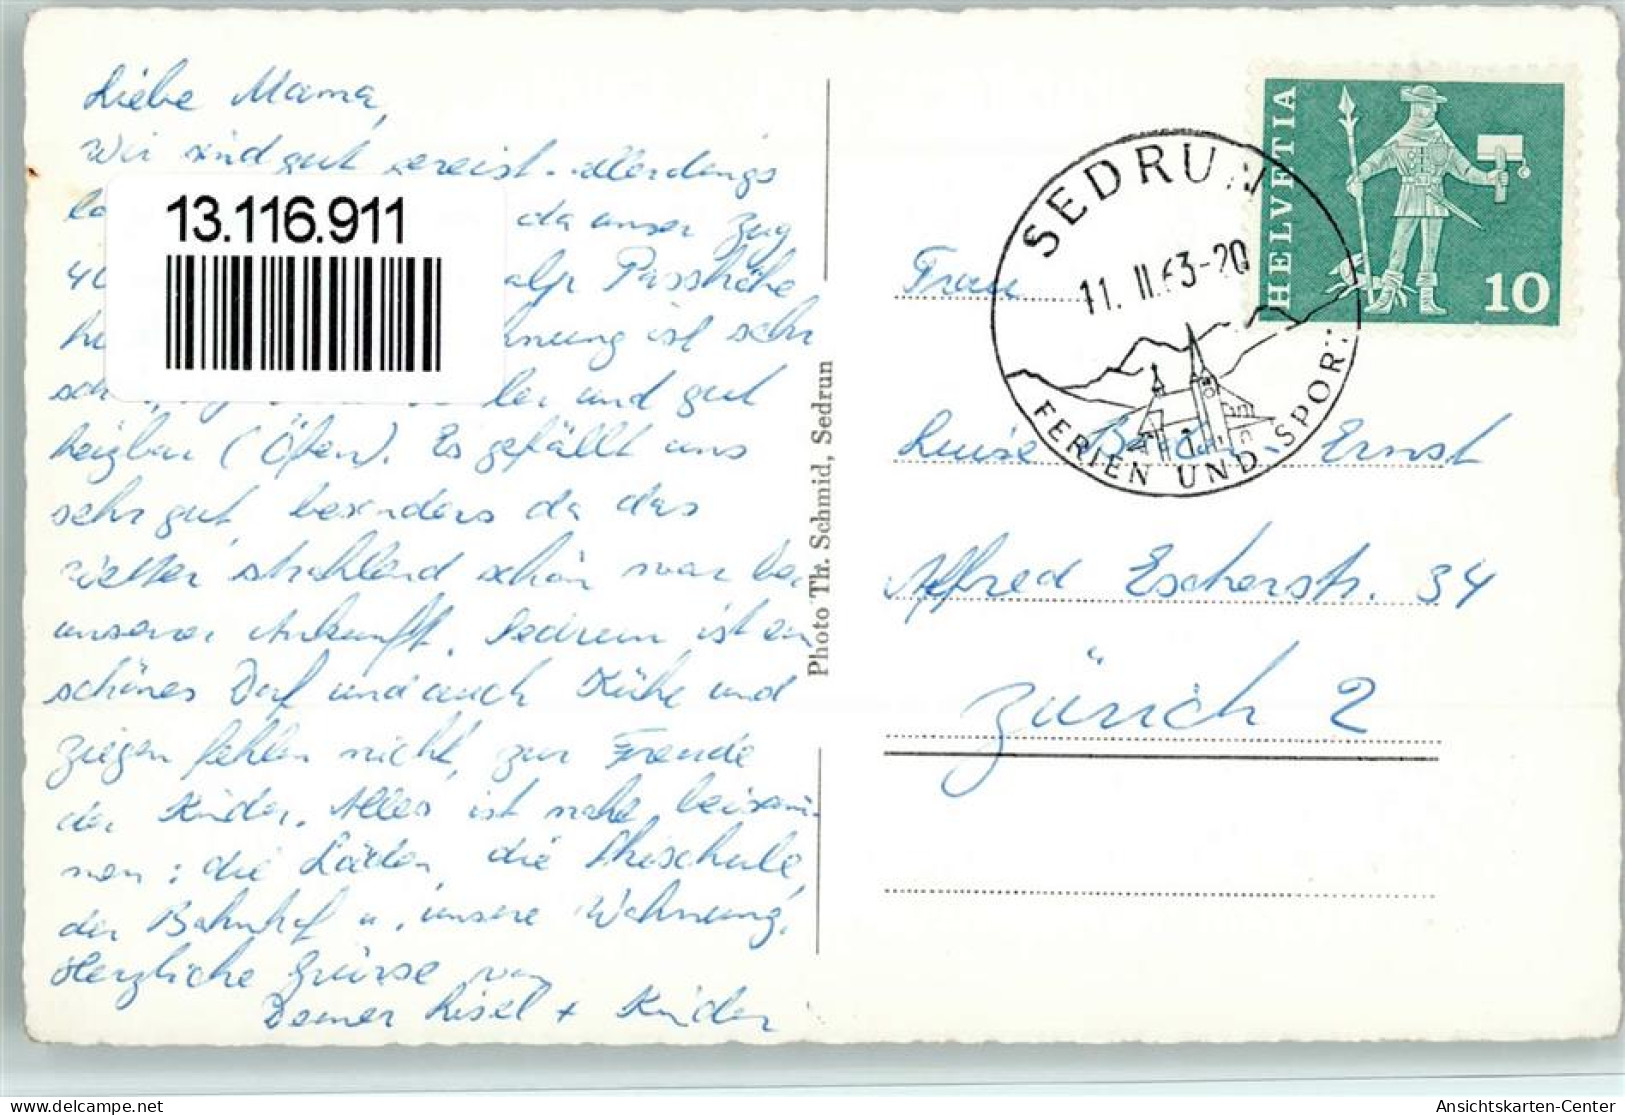 Liebe Mama,
Wir sind gut gereist. allerdings
13.116.911
da unser Zug
alp Passhöhe
ist sehr
und gut
heizbar (Öfen). Es gefällt uns
sehr gut, besonders da das
Wetter strahlend schön war bei
unserer Ankunft. Sedrun ist ein
schönes Dorf und auch Kühe und
Ziegen fehlen nicht, zur Freude
der Kinder. Alles ist nahe beisam-
men: die Läden, die Skischule,
der Bahnhof u. unsere Wohnung.
Herzliche Grüsse von
Deiner Lisel + Kinder
Photo Th. Schmid, Sedrun
HELVETIA
10
SEDRUN
11. II. 63-20
FERIEN UND SPORT
Frau
Luise Ernst
Alfred Escherstr. 34
Zürich 2
Ansichtskarten-Center
delcampe.net